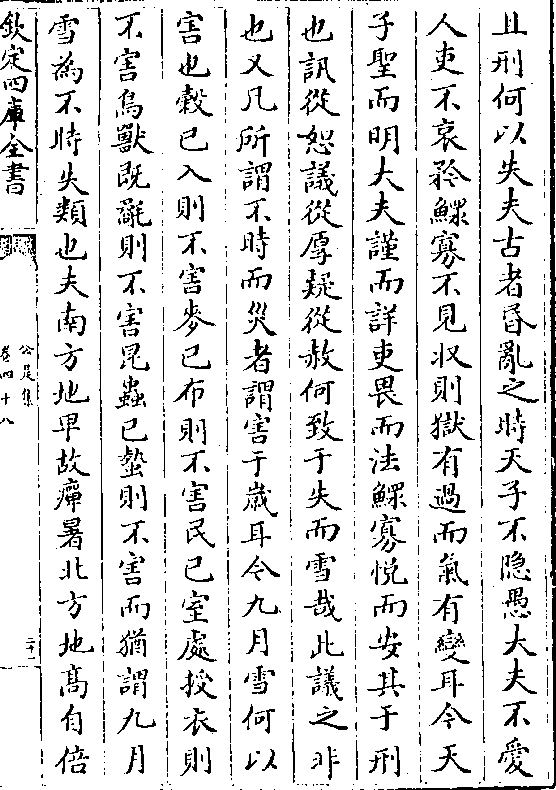 且刑何以失夫古者昏亂之時天子不隠愚大夫不愛
人吏不哀矜鰥寡不見収則獄有過而氣有變耳今天
子聖而明大夫謹而詳吏畏而法鰥寡悦而安其于刑
也訊從恕議從厚疑從赦何致于失而雪哉此議之非
也又凡所謂不時而災者謂害于歳耳今九月雪何以
害也穀已入則不害麥已布則不害民已室處授衣則
不害鳥獸既毻則不害昆蟲已蟄則不害而猶謂九月
雪為不時失類也夫南方地卑故癉暑北方地髙自倍
欽定四庫全書
公是集
卷四十八